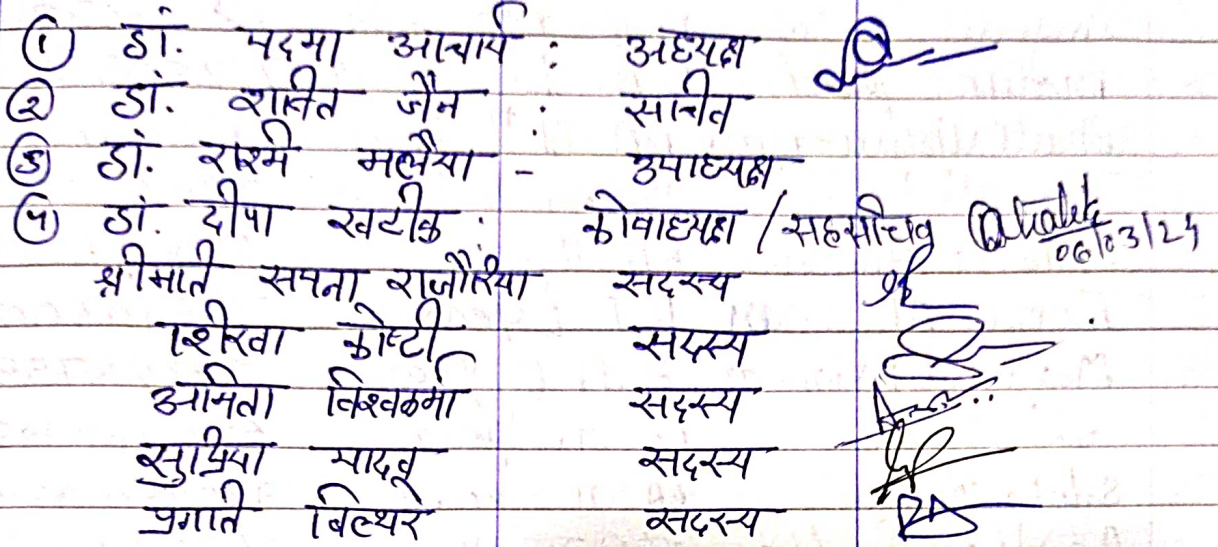 ① डां. पदमा आचार्य : अध्यक्ष
② डां. शक्ति जैन : सचिव
③ डां. रश्मि मलैया - उपाध्यक्ष
④ डां. दीपा खटीक : कोषाध्यक्ष / सहसचिव 06/03/24
श्रीमति सपना राजौरिया सदस्य
शिखा कोष्टी सदस्य
अमिता विश्वकर्मा सदस्य
सुप्रिया यादव सदस्य
प्रगति बिल्थरे सदस्य